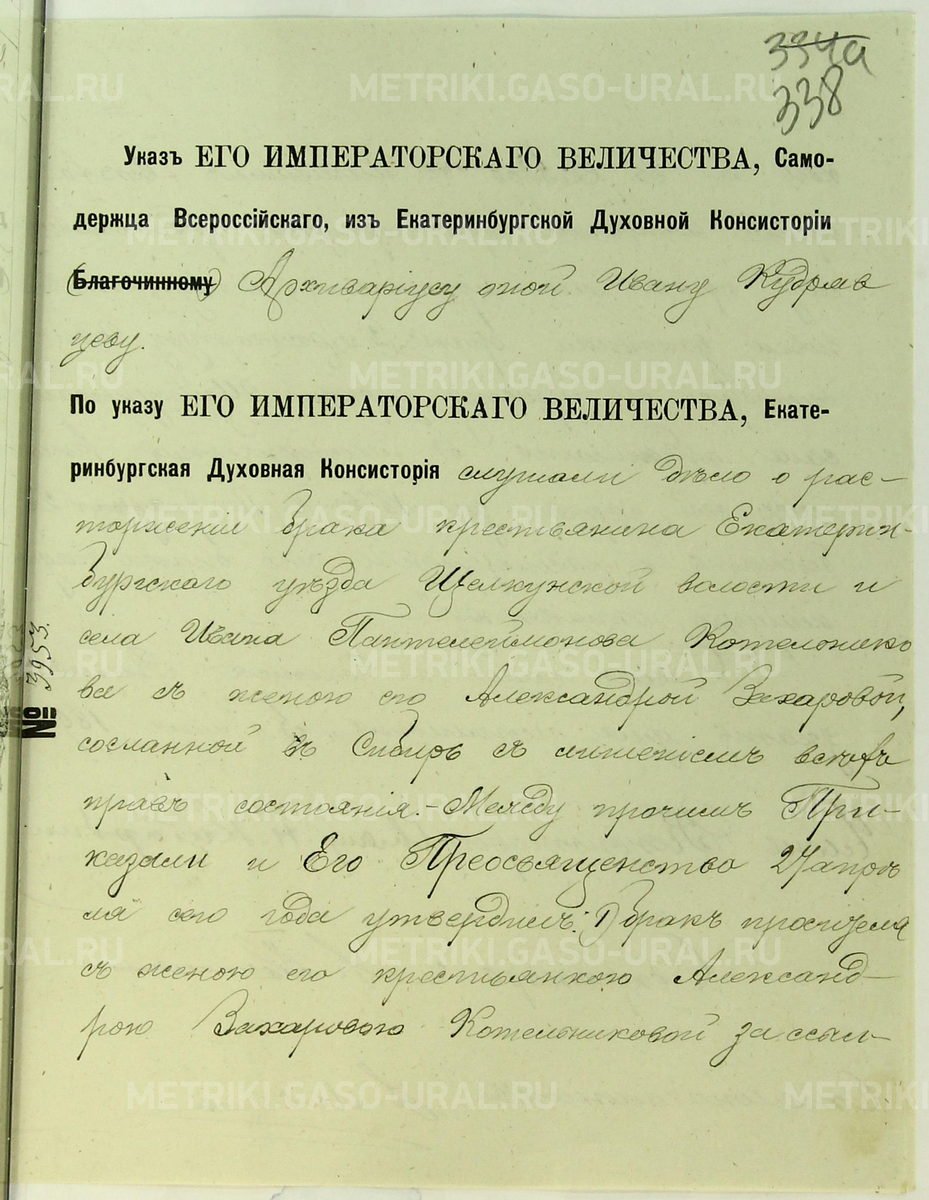 334а
338
Указъ ЕГО ИМПЕРАТОРСКАГО ВЕЛИЧЕСТВА, Само-
держца Всероссійскаго, изъ Екатеринбургской Духовной Консисторіи
(Благочинному) Архиваріусу оной Ивану Кудряв
цеву.
По указу ЕГО ИМПЕРАТОРСКАГО ВЕЛИЧЕСТВА, Екате-
ринбургская Духовная Консисторія слушали дѣло о рас-
торженіи брака крестьянина Екатерин-
бургскаго уѣзда Щелкунской волости и
села Ивана Пантелеймонова Котельнико
ва съ женою его Александрой Захаровой,
сосланной въ Сибирь съ лишеніемъ всѣхъ
правъ состоянія. - Между прочимъ При-
казали и Его Преосвященство 27 апрѣ
ля сего года утвердилъ: 1) бракъ просителя
съ женою его крестьянкою Александ-
рою Захаровою Котельниковой за ссыл-
№ 3953.
METRIKI.GASO-URAL.RU